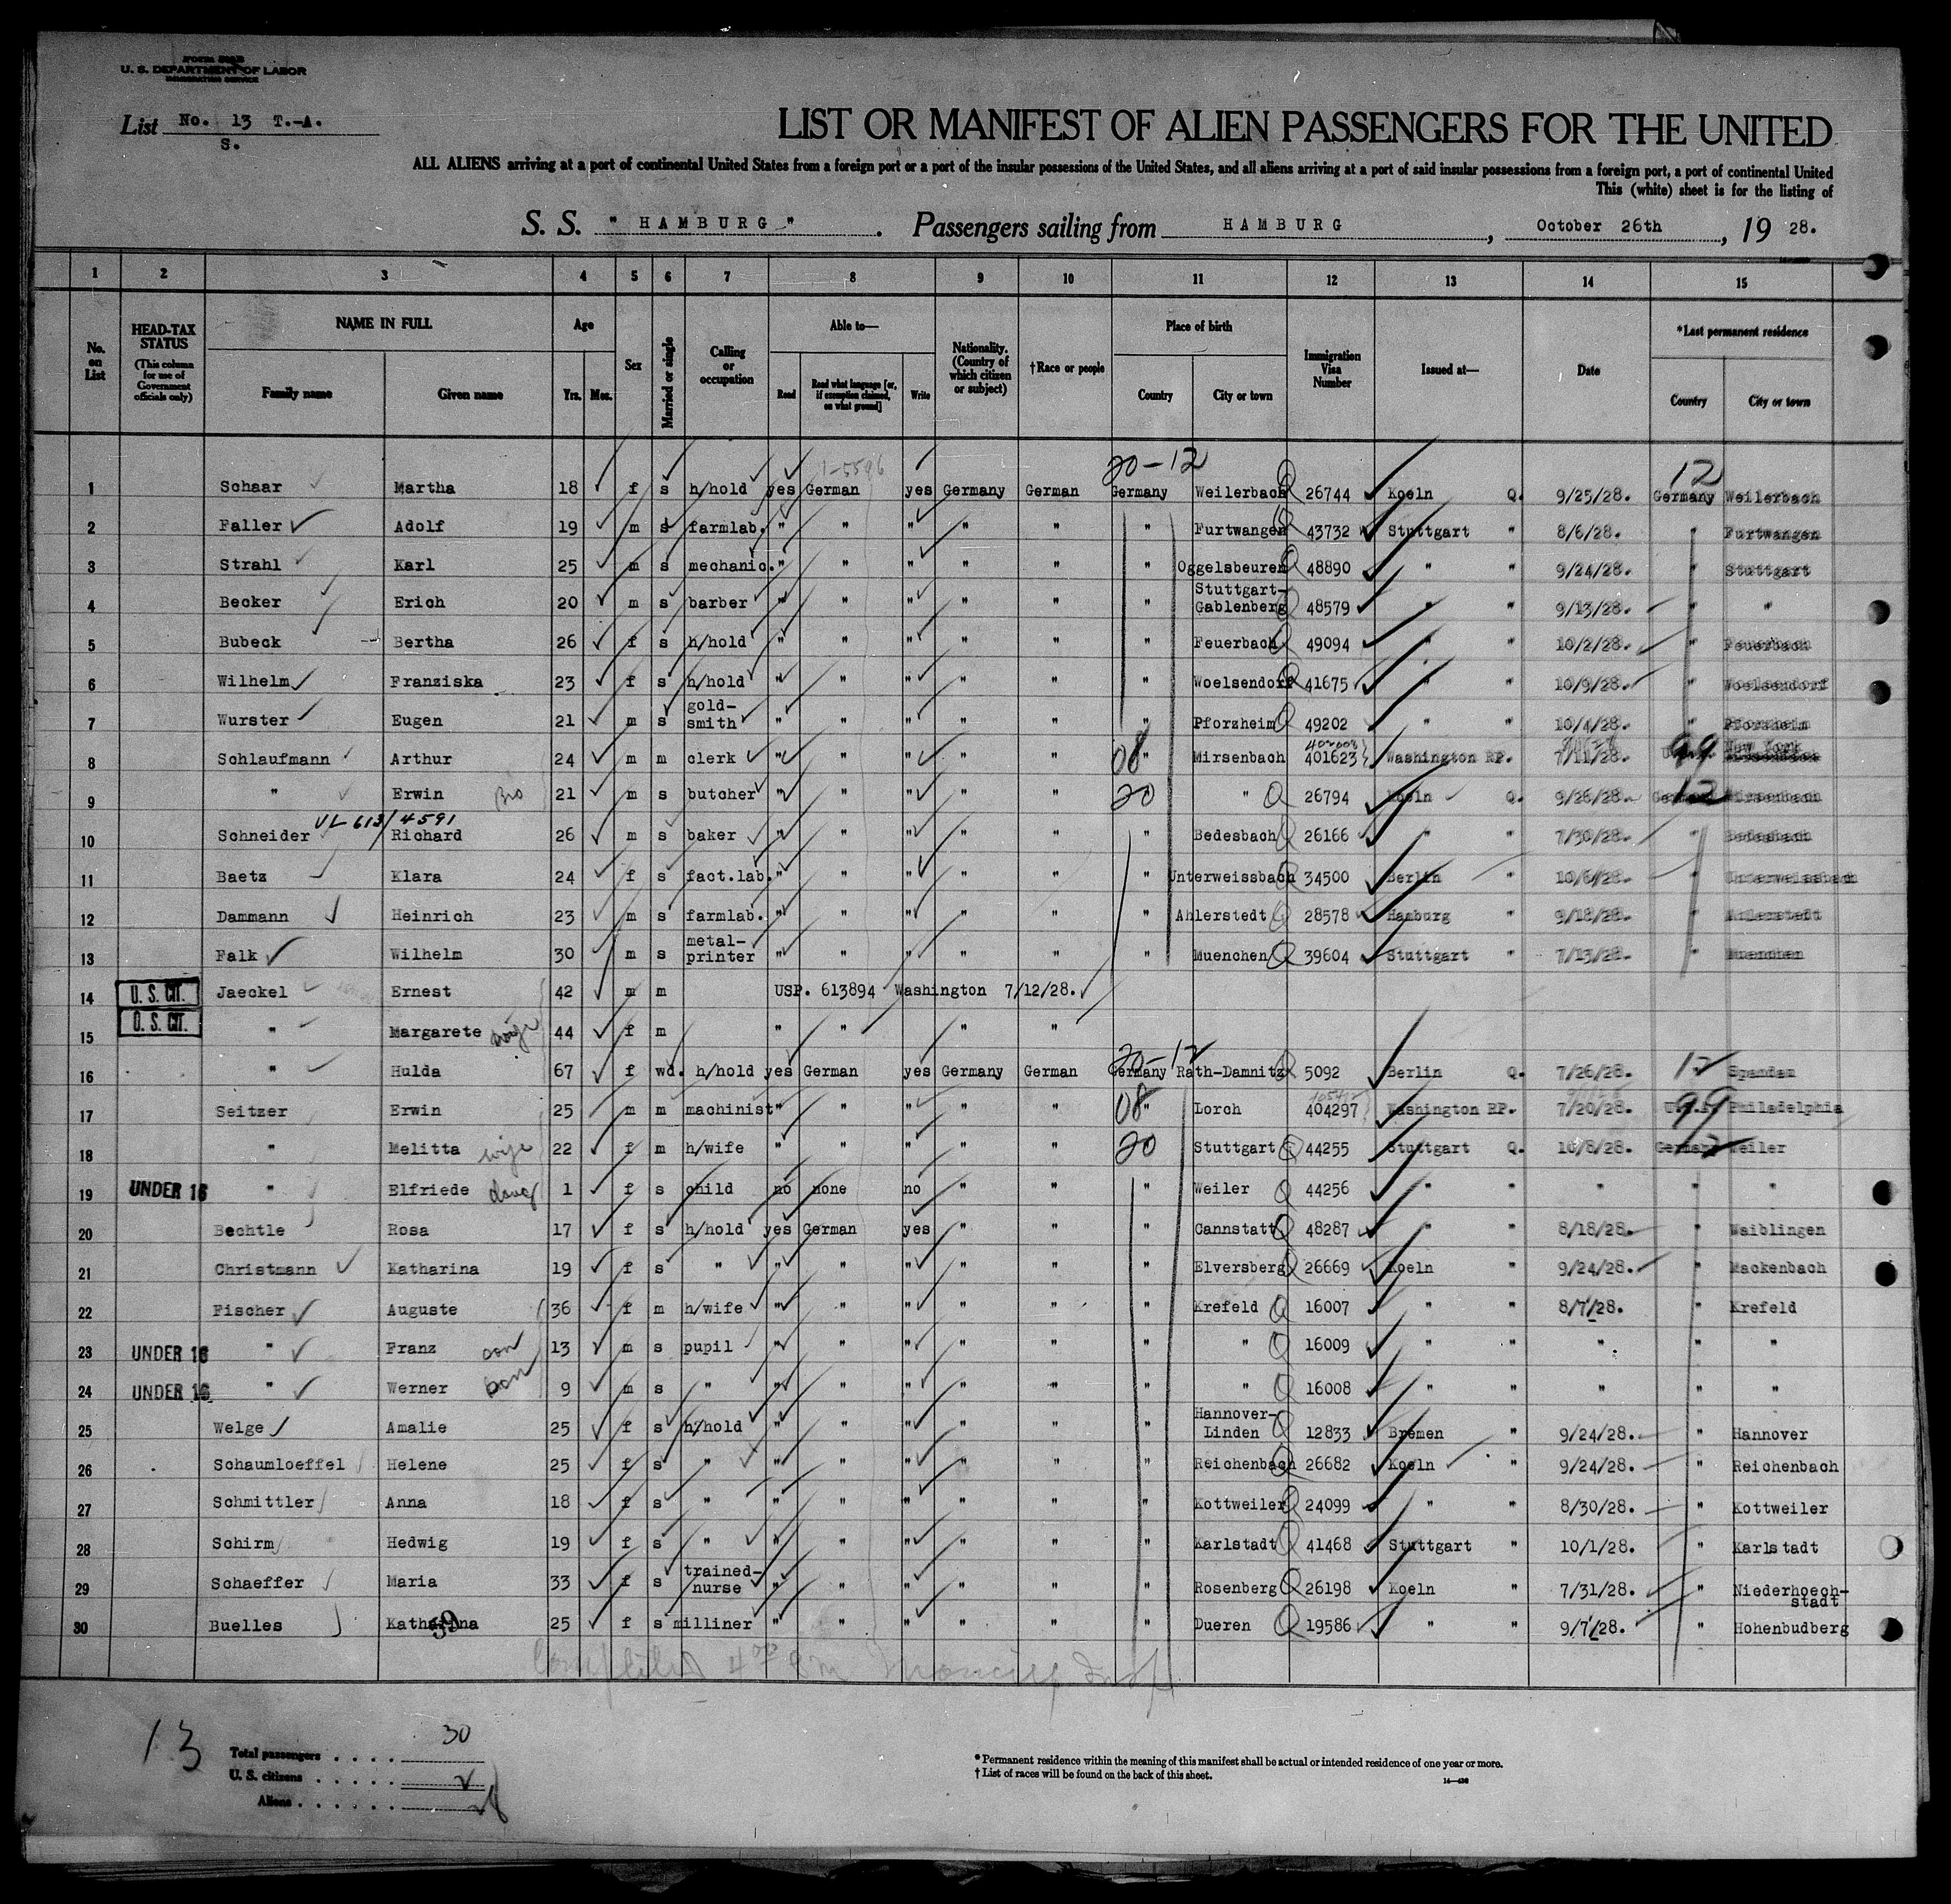 U. S. DEPARTMENT OF LABOR
IMMIGRATION SERVICE
List No. 13 T.-A.
S.
LIST OR MANIFEST OF ALIEN PASSENGERS FOR THE UNITED
ALL ALIENS arriving at a port of continental United States from a foreign port or a port of the insular possessions of the United States, and all aliens arriving at a port of said insular possessions from a foreign port, a port of continental United
This (white) sheet is for the listing of
S. S. " HAMBURG " . Passengers sailing from HAMBURG , October 26th , 19 28.
1 2 3 4 5 6 7 8 9 10 11 12 13 14 15
No. on List HEAD-TAX STATUS (This column for use of Government officials only) NAME IN FULL Family name Given name Age Yrs. Mos. Sex Married or single Calling or occupation Able to— Read Read what language [or, if exemption claimed, on what ground] Write Nationality. (Country of which citizen or subject) †Race or people Place of birth Country City or town Immigration Visa Number Issued at— Date *Last permanent residence Country City or town
1-5596 20-12 12
1 Schaar Martha 18 f s h/hold yes German yes Germany German Germany Weilerbach Q 26744 Koeln Q. 9/25/28. Germany Weilerbach
2 Faller Adolf 19 m s farmlab. " " " " " " Furtwangen Q 43732 Stuttgart " 8/6/28. " Furtwangen
3 Strahl Karl 25 m s mechanic. " " " " " " Oggelsbeuren Q 48890 " " 9/24/28. " Stuttgart
4 Becker Erich 20 m s barber " " " " " " Stuttgart-Gablenberg Q 48579 " " 9/13/28. " "
5 Bubeck Bertha 26 f s h/hold " " " " " " Feuerbach Q 49094 " " 10/2/28. " Feuerbach
6 Wilhelm Franziska 23 f s h/hold " " " " " " Woelsendorf Q 41675 " " 10/9/28. " Woelsendorf
7 Wurster Eugen 21 m s gold-smith " " " " " " Pforzheim Q 49202 " " 10/4/28. " Pforzheim
8 Schlaufmann Arthur 24 m m clerk " " " " " 08 " Mirsenbach 401623 Washington RP. 7/11/28. 99 New York
9 " Erwin Bro 21 m s butcher " " " " " 20 " Q 26794 Koeln Q. 9/26/28. Germany 12 Mirsenbach
VL 613/4591
10 Schneider Richard 26 m s baker " " " " " " Bedesbach Q 26166 " " 7/30/28. " Bedesbach
11 Baetz Klara 24 f s fact.lab. " " " " " " Unterweissbach Q 34500 Berlin " 10/6/28. " Unterweissbach
12 Dammann Heinrich 23 m s farmlab. " " " " " " Ahlerstedt Q 28578 Hamburg " 9/18/28. " Ahlerstedt
13 Falk Wilhelm 30 m s metal-printer " " " " " " Muenchen Q 39604 Stuttgart " 7/13/28. " Muenchen
14 U. S. CIT. Jaeckel Ernest 42 m m USP. 613894 Washington 7/12/28.
15 U. S. CIT. " Margarete wife 44 f m " " " "
16 " Hulda 67 f wd. h/hold yes German yes Germany German 20-12 Germany Rath-Damnitz Q 5092 Berlin Q. 7/26/28. 12 Spandau
17 Seitzer Erwin 25 m m machinist " " " " " 08 " Lorch 404297 Washington RP. 7/20/28. 99 Philadelphia
18 " Melitta wife 22 f m h/wife " " " " " 20 Stuttgart Q 44255 Stuttgart Q. 10/8/28. Germany 12 Weiler
19 UNDER 16 " Elfriede daug 1 f s child no none no " " " Weiler Q 44256 " " " " "
20 Bechtle Rosa 17 f s h/hold yes German yes " " " Cannstatt Q 48287 " " 8/18/28. " Waiblingen
21 Christmann Katharina 19 f s " " " " " " " Elversberg Q 26669 Koeln " 9/24/28. " Mackenbach
22 Fischer Auguste 36 f m h/wife " " " " " " Krefeld Q 16007 " " 8/7/28. " Krefeld
23 UNDER 16 " Franz son 13 m s pupil " " " " " " " Q 16009 " " " " "
24 UNDER 16 " Werner son 9 m s " " " " " " " " Q 16008 " " " " "
25 Welge Amalie 25 f s h/hold " " " " " " Hannover-Linden Q 12833 Bremen " 9/24/28. " Hannover
26 Schaumloeffel Helene 25 f s " " " " " " " Reichenbach Q 26682 Koeln " 9/24/28. " Reichenbach
27 Schmittler Anna 18 f s " " " " " " " Kottweiler Q 24099 " " 8/30/28. " Kottweiler
28 Schirm Hedwig 19 f s " " " " " " " Karlstadt Q 41468 Stuttgart " 10/1/28. " Karlstadt
29 Schaeffer Maria 33 f s trained-nurse " " " " " " Rosenberg Q 26198 Koeln " 7/31/28. " Niederhoech-stadt
30 Buelles Katharina 25 f s milliner " " " " " " Dueren Q 19586 " " 9/7/28. " Hohenbudberg
59
13
Total passengers . . . . 30
U. S. citizens . . . . . 2
Aliens . . . . . . 28
* Permanent residence within the meaning of this manifest shall be actual or intended residence of one year or more.
† List of races will be found on the back of this sheet.
14—430